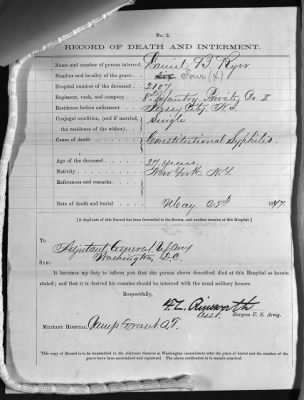 No. 2.
RECORD OF DEATH AND INTERMENT.
Name and number of person interred. Daniel B
Number and locality of the grave Four (4)
Hospital number of the deceased 2107
Regiment, rank, and company 8" Infantry, Private, Co.
Residence before enlistment Jersey City, N.J.
Conjugal condition, (and if married, Single
the residence of the widow).
Cause of death Constitutional Syphilis.
Age of the deceased 27 years.
Nativity New York N.Y.
References and remarks
Date of death and burial May 25th
[A duplicate of this Record has been forwarded to the Sexton, and another remains at this Hospital.]
To
Adjutant General U.S. Army
Washington, D.C.
SIR:
It becomes my duty to inform you that the person above described died at this Hospital as herein
stated; and that it is desired his remains should be interred with the usual military honors.
Respectfully,
F.C. Ainsworth
Asst. Surgeon U. S. Army.
MILITARY HOSPITAL, Camp Grant A.T.
[This copy of Record is to be transmitted to the Adjutant General at Washington immediately after the grave of burial and the number of the
grave have been ascertained and registered. The above notification is to remain attached.